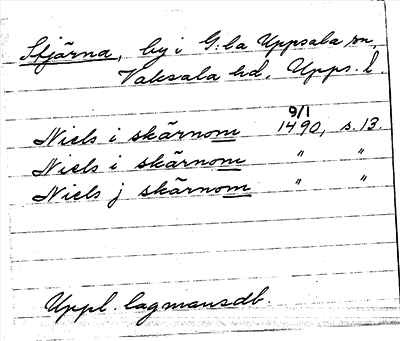 Stjärna, by i G:la Uppsala sn,
Vaksala hd, Upps. l.
9/1
Niels i skärnom 1490, s. 13.
Niels i skärnom " "
Niels j skärnom " "
Uppl. lagmansdb.